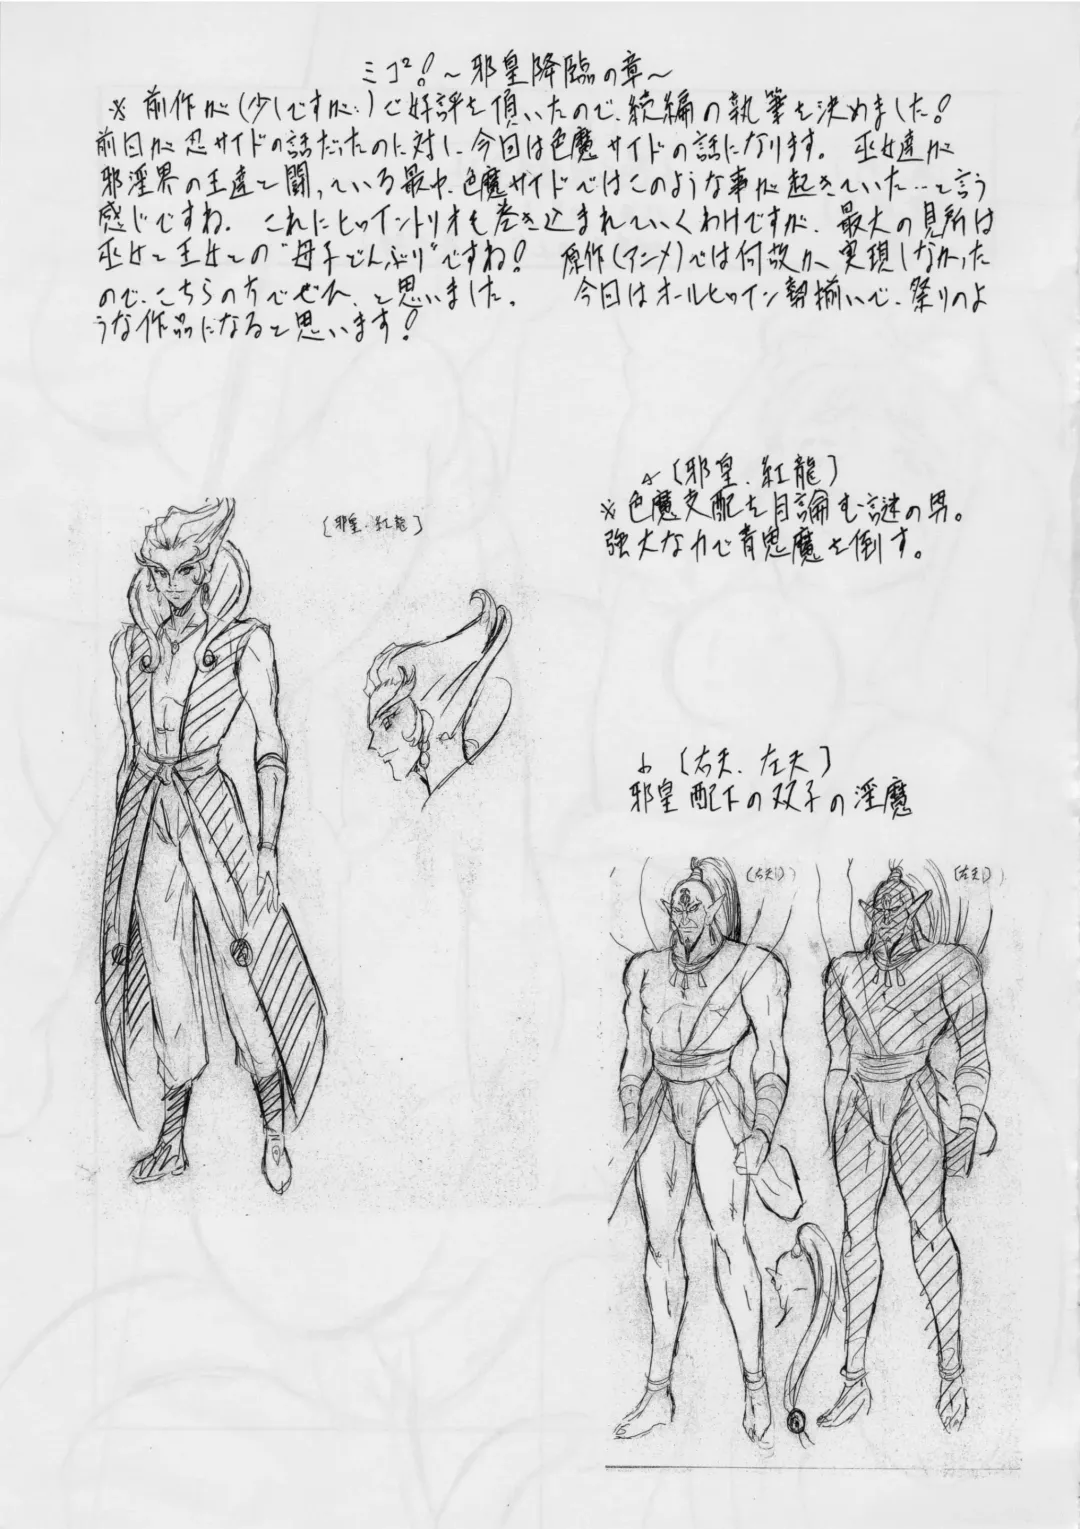 ミコ²!～邪皇降臨の章～
※前作が(少しですが…)ご好評を頂いたので、続編の執筆を決めました!
前回が忍サイドの話だったのに対し、今回は色魔サイドの話になります。 巫女達が
邪淫界の王達と闘っている最中、色魔サイドではこのような事が起きていた…と言う
感じですね。 これにヒロイントリオも巻き込まれていくわけですが、最大の見所は
巫女と王女との"母子どんぶり"ですね! 原作(アニメ)では何故か、実現しなかった
ので、こちらの方でぜひ、と思いました。 今回はオールヒロイン勢揃いで、祭りのよ
うな作品になると思います!
[邪皇・紅龍]
※色魔支配を目論む謎の男。
強大な力で青鬼魔を倒す。
[邪皇・紅龍]
[右夭、左夭]
邪皇配下の双子の淫魔